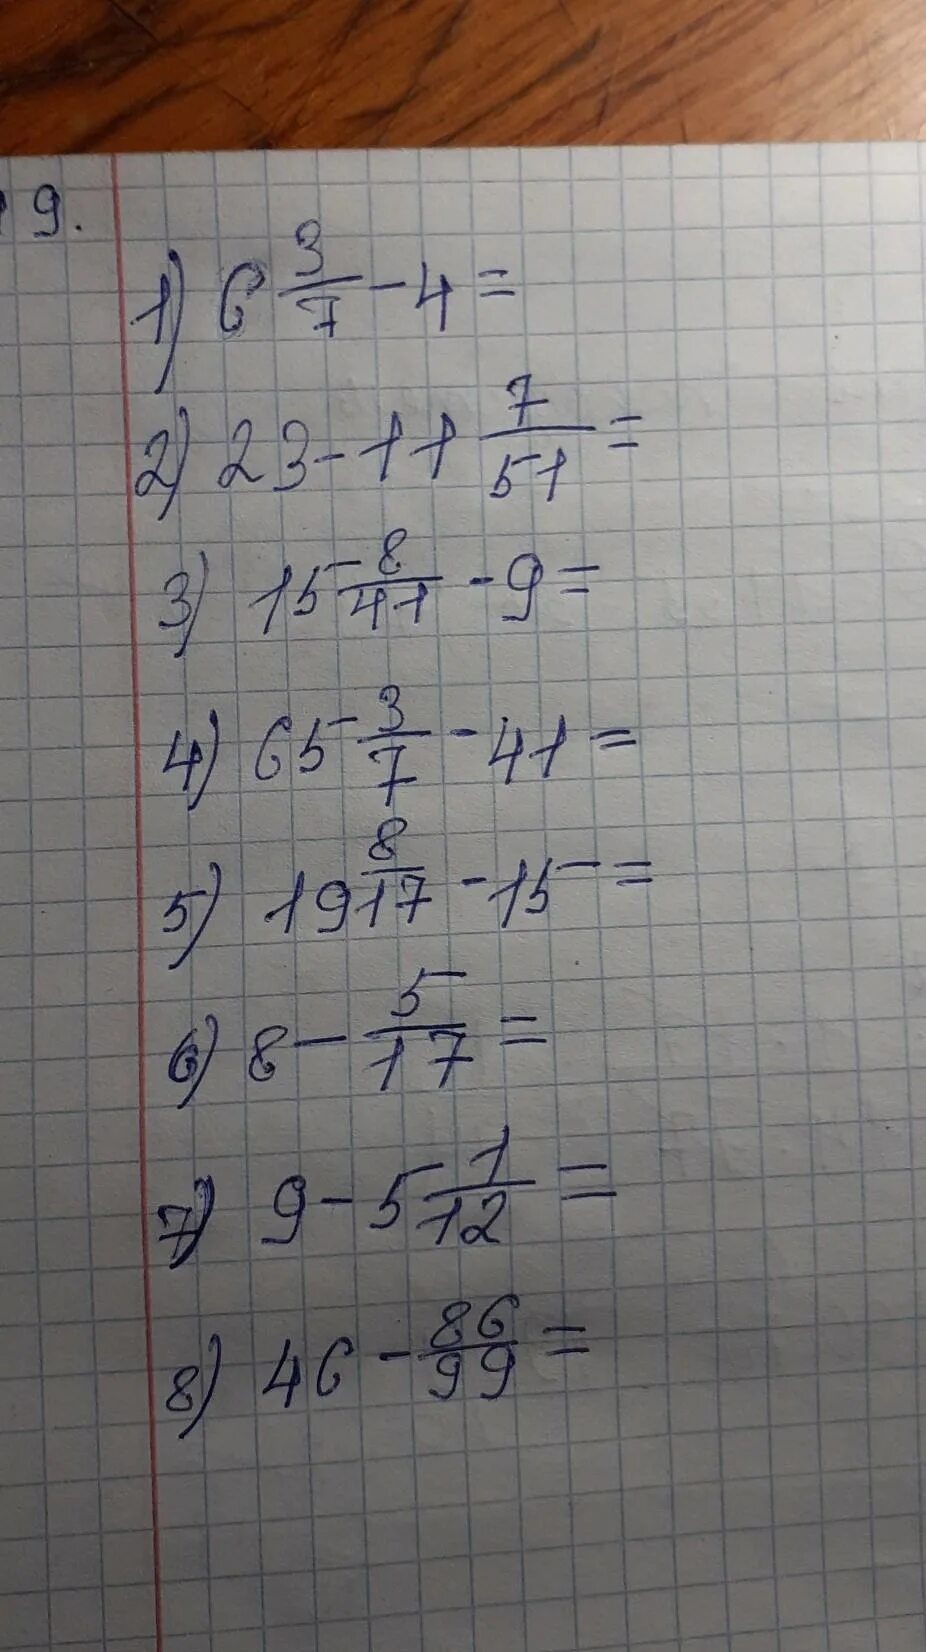 19.
1) 6 3/7 - 4 =
2) 23 - 11 7/51 =
3) 15 8/41 - 9 =
4) 65 3/7 - 41 =
5) 19 8/17 - 15 =
6) 8 - 5/17 =
7) 9 - 5 1/12 =
8) 46 - 86/99 =